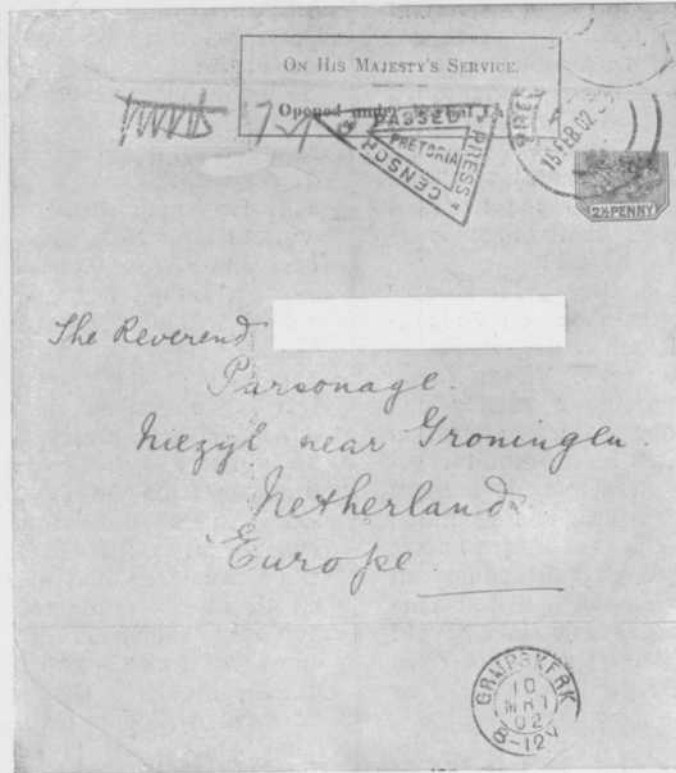 ON HIS MAJESTY'S SERVICE.
Opened under
PASSED
PRESS
CENSOR
PRETORIA
15 FEB 02
2½ PENNY
The Reverend
Parsonage.
Niezyl near Groningen.
Netherland
Europe
GRIJPSKERK
10
MRT
02
8-12V